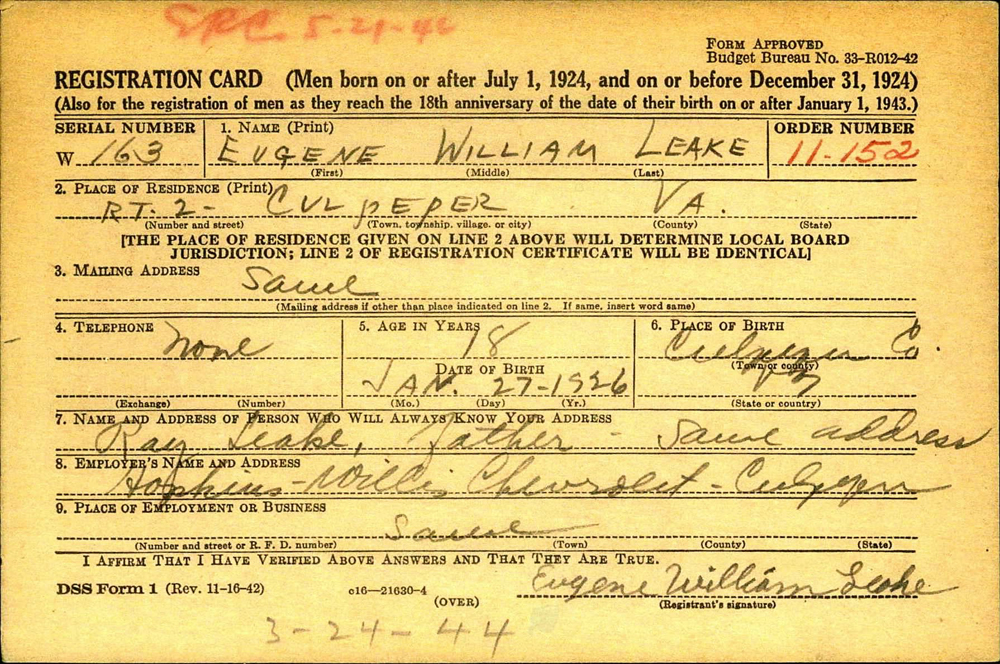 ERC. 5-21-4
FORM APPROVED
Budget Bureau No. 33-R012-42
REGISTRATION CARD (Men born on or after July 1, 1924, and on or before December 31, 1924)
(Also for the registration of men as they reach the 18th anniversary of the date of their birth on or after January 1, 1943.)
SERIAL NUMBER 1. NAME (Print) ORDER NUMBER
W 163 EUGENE WILLIAM LEAKE 11-152
(First) (Middle) (Last)
2. PLACE OF RESIDENCE (Print)
RT. 2- CULPEPER VA.
(Number and street) (Town, township, village, or city) (County) (State)
[THE PLACE OF RESIDENCE GIVEN ON LINE 2 ABOVE WILL DETERMINE LOCAL BOARD
JURISDICTION; LINE 2 OF REGISTRATION CERTIFICATE WILL BE IDENTICAL]
3. MAILING ADDRESS
Same
(Mailing address if other than place indicated on line 2. If same, insert word same)
4. TELEPHONE 5. AGE IN YEARS 6. PLACE OF BIRTH
None 18 Culpeper Co.
(Town or county)
DATE OF BIRTH
JAN. 27-1926
(Exchange) (Number) (Mo.) (Day) (Yr.) (State or country)
7. NAME AND ADDRESS OF PERSON WHO WILL ALWAYS KNOW YOUR ADDRESS
Ray Leake, Father - Same address
8. EMPLOYER'S NAME AND ADDRESS
Hopkins-Willis Chevrolet - Culpeper
9. PLACE OF EMPLOYMENT OR BUSINESS
Same
(Number and street or R. F. D. number) (Town) (County) (State)
I AFFIRM THAT I HAVE VERIFIED ABOVE ANSWERS AND THAT THEY ARE TRUE.
Eugene William Leake
DSS Form 1 (Rev. 11-16-42) c16—21630-4
(OVER) (Registrant's signature)
3-24-44